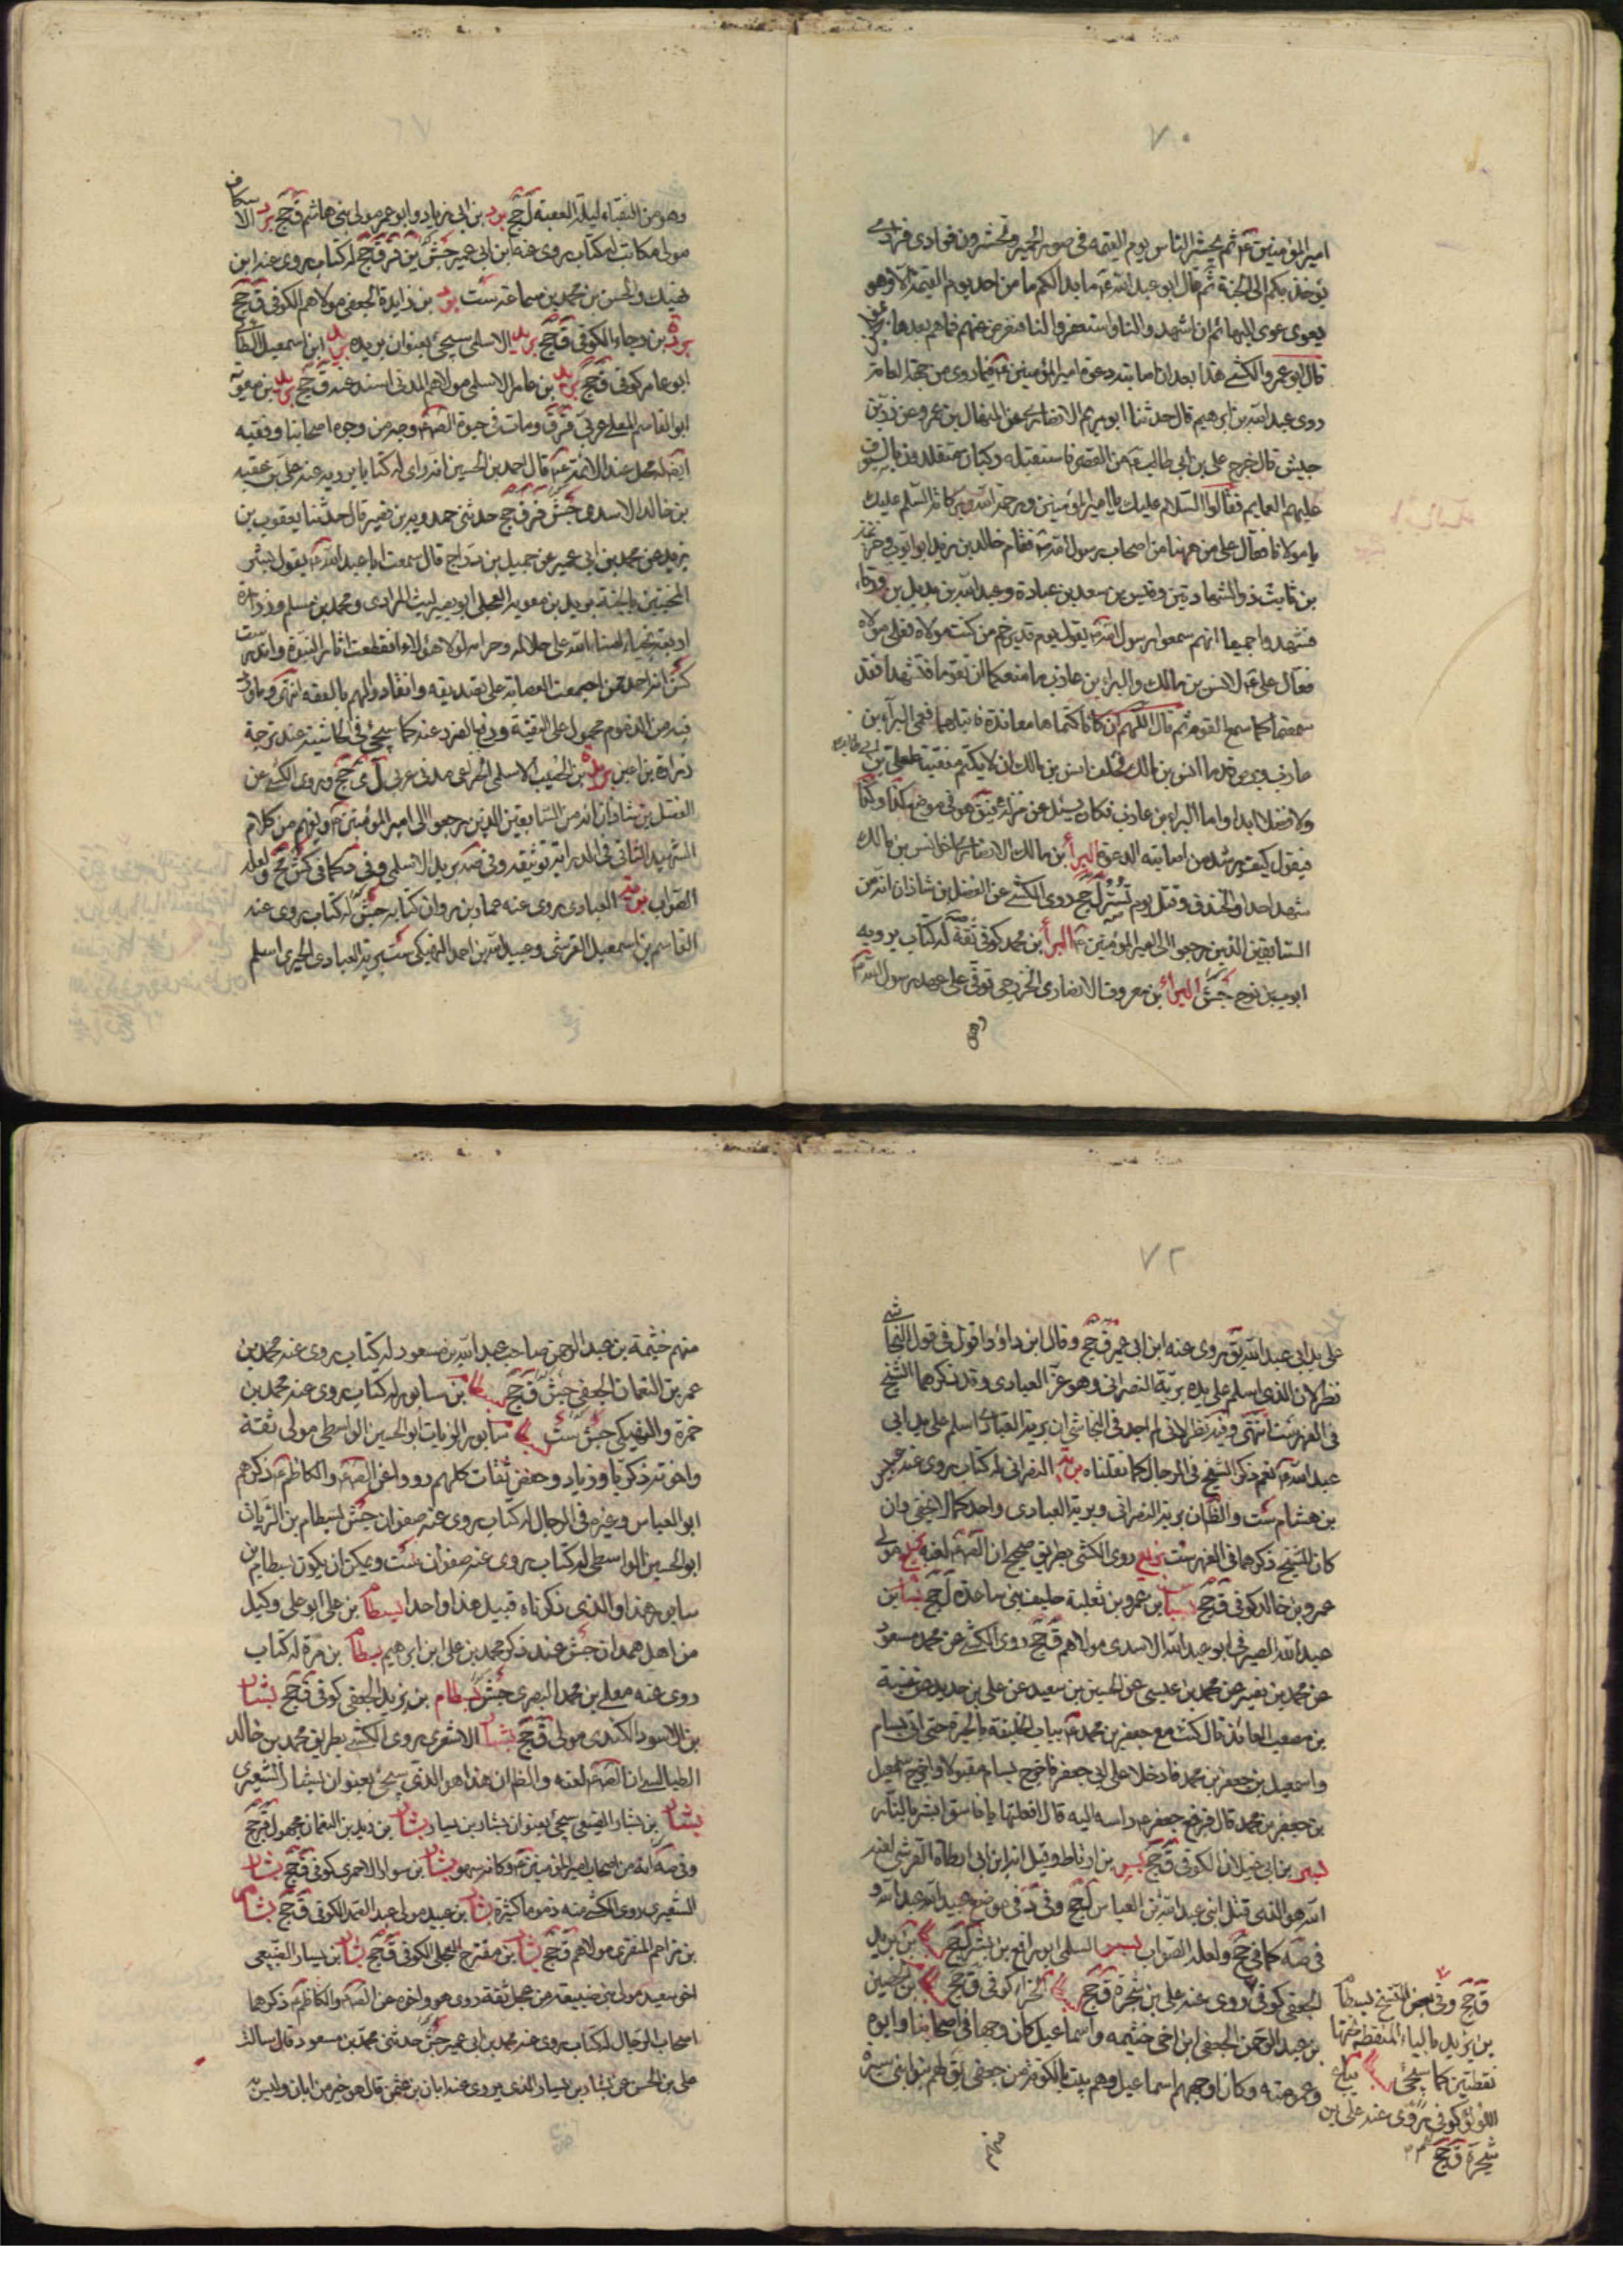 ٧٠
امير المؤمنين ثم يحشر الناس يوم القيمة في صور الحمير وتحشرون فرادى فرادى
يؤخذ بكم الى الجنة ثم قال ابو عبد الله ما بدا لكم ما من احد يوم القيمة الا وهو
يعوى عوى البهائم ان اشهدوا لنا واستغفروا لنا فنعرض عنهم فما هم بعدها
قال ابو عمرو الكشي هذا بعد ان اصابته دعوة امير المؤمنين فيما روى من جهة العامة
روى عبد الله بن ابرهيم قال حدثنا ابو مريم الانصاري عن المنهال بن عمرو عن زر بن
حبيش قال خرج علي بن ابي طالب من القصر فاستقبله ركبان متقلدون بالسيوف
عليهم العمايم فقالوا السلام عليك يا امير المؤمنين ورحمة الله وبركاته السلم عليك
يا مولانا فقال علي من ههنا من اصحاب رسول الله فقام خالد بن زيد ابو ايوب وخزيمة
بن ثابت ذو الشهادتين وقيس بن سعد بن عبادة وعبد الله بن بديل بن ورقاء
فشهدوا جميعا انهم سمعوا رسول الله يقول يوم غدير خم من كنت مولاه فعلي مولاه
فقال علي لانس بن مالك والبراء بن عازب ما منعكما ان تقوما فتشهدا فقد
سمعتما كما سمع القوم ثم قال اللهم ان كانا كتماها معاندة فابتلهما فعمى البراء بن
عازب وبرص قدما انس بن مالك فحلف انس بن مالك ان لا يكتم منقبة لعلي بن ابي طالب
ولا فضلا ابدا واما البراء بن عازب فكان يسئل عن منزله فيق هو في موضع كذا وكذا
فيقول كيف يرشد من اصابته الدعوة البراء بن مالك الانصاري اخو انس بن مالك
شهد احدا والخندق وقتل يوم تستر ل جخ روى الكشي عن الفضل بن شاذان انه من
السابقين الذين رجعوا الى امير المؤمنين البراء بن محمد كوفي ثقة له كتاب يرويه
ايوب بن نوح جش البراء بن معرور الانصاري الخزرجي توفي على عهد رسول الله
وهو
وهو من النقباء ليلة العقبة ل جخ برد بن ابي زياد وابو عمر مولى بني هاشم ق جخ برد الاسكاف
مولى مكاتب له كتاب يروى عنه ابن ابي عمير جش ين قر ق جخ له كتاب يروى عنه ابن
نهيك والحسن بن محمد بن سماعة ست برد بن زايدة الجعفي مولاهم الكوفي ق جخ
بردة بن رجاء الكوفي ق جخ بريد الاسلمي سيجئ بعنوان بريده بريد ابن اسمعيل الطائي
ابو عامر كوفي ق جخ بريد بن عامر الاسلمي مولاهم المدني اسند عنه ق جخ بريد بن معوية
ابو القاسم العجلي عربي قر ق ومات في حيوة الصم وجه من وجوه اصحابنا وفقيه
ايضا له محل عند الائمة قال احمد بن الحسين انه راى له كتابا يرويه عنه علي بن عقبه
بن خالد الاسدي جش قر ق جخ حدثني حمدويه بن نصير قال حدثنا يعقوب بن
يزيد عن محمد بن ابي عمير عن جميل بن دراج قال سمعت ابا عبد الله يقول بشر
المخبتين بالجنة بريد بن معويه العجلي ابو بصير ليث المرادي ومحمد بن مسلم وزراره
اربعة نجباء امناء الله على حلاله وحرامه لولا هؤلاء انقطعت اثار النبوة واندرست
كش انه احد من اجمعت العصابة على تصديقه وانقادوا لهم بالفقه انتهى وما ورد
فيه من الذم محمول على التقية ودفع الضرر عنه كما سيجئ في الحاشية عند ترجمة
زرارة بن اعين بريدة بن الخصيب الاسلمي الخزاعي مدني عربي ل ى جخ وروى الكشي عن
الفضل بن شاذان انه من السابقين الذين رجعوا الى امير المؤمنين ويفهم من كلام
الشهيد الثاني في الدراية توثيقه وفي صه بريد الاسلمي وفي د كما في كش جخ ولعله
الصواب بريه العبادي روى عنه عماد بن مروان كتابه جش له كتاب روى عنه
القاسم بن اسمعيل القرشي وعبيد الله بن احمد النهيكي ست بريه العبادي الحيري اسلم
٧٢
على يد ابي عبد الله يق روى عنه ابن ابي عمير ق جخ وقال ابن داؤد اقول في قول النجاشي
نظر لان الذي اسلم على يده بريه النصراني وهو غير العبادي وقد ذكرهما الشيخ
في الفهرست انتهى وفيه نظر لاني لم اجد في النجاشي ان بريه العبادي اسلم على يد ابي
عبد الله نعم ذكر الشيخ في الرجال كما نقلناه بريه النصراني له كتاب روى عنه عبيس
بن هشام ست والظ ان بريه النصراني وبريه العبادي واحد كما لا يخفى وان
كان الشيخ ذكرهما في الفهرست بزيع روى الكشي بطريق صحيح ان الصم لعنه بزيع مولى
عمرو بن خالد كوفي ق جخ بسباس بن عمرو بن ثعلبة حليف بني ساعدة ل جخ بسام بن
عبد الله الصيرفي ابو عبد الله الاسدي مولاهم ق جخ روى الكشي عن محمد بن مسعود
عن محمد بن نصير عن محمد بن عيسى عن الحسين بن سعيد عن علي بن حديد عن عنبسة
بن مصعب العائذ قال كنت مع جعفر بن محمد بباب الخليفة بالحيرة حتى اتى بسام
واسمعيل بن جعفر بن محمد فادخلا على ابي جعفر فاخرج بسام مقتولا واخرج اسمعيل
بن جعفر بن محمد قال فرفع جعفر راسه اليه قال افعلتها يا فاسق ابشر بالنار
بسر بن ابي غيلان الكوفي ق جخ بسر بن ارطاط وقيل انه ابن ابي ارطاة القرشي لعنه
الله هو الذي قتل ابني عبد الله بن العباس ل جخ وفي د في موضع عبيد الله عبد الله و
في صه كما في جخ ولعله الصواب بسر السلمي ابو رافع بن بشر ل جخ بن يزيد
الجعفي كوفي روى عنه علي بن شجرة ق جخ الخزاء كوفي ق جخ بن الحصين
بن عبد الرحمن الجعفي ابن اخي خثيمه واسماعيل كان وجها في اصحابنا وابوه
وعمومته وكان اوجههم اسماعيل وهم بيت بالكوفة من جعفي يق لهم بنو ابي سبرة
ق جخ وفي بعض النسخ بسطام
بن بريد بالباء المنقطة تحتها
نقطتين كما سيجئ بياع
اللؤلؤ كوفي روى عنه علي بن
شجرة ق جخ
منهم
منهم خثيمة بن عبد الرحمن صاحب عبد الله بن مسعود له كتاب يروى عنه محمد بن
عمر بن النعمان الجعفي جش ق جخ بسطام بن سابور له كتاب يروى عنه محمد بن
حمزة والنهيكي جش ست سابور الزيات ابو الحسين الواسطي مولى ثقة
واخوته زكريا وزياد وحفص ثقات كلهم رووا عن الصم والكاظم ذكرهم
ابو العباس وغيره في الرجال له كتاب يروى عنه صفوان جش بسطام بن الزيات
ابو الحسين الواسطي له كتاب يروى عنه صفوان ست ويمكن ان يكون بسطام بن
سابور هذا والذي ذكرناه قبيل هذا واحدا بسطام بن علي ابو علي وكيل
من اهل همدان جش عند ذكر محمد بن علي ابن ابرهيم بسطام بن مرة له كتاب
روى عنه معلى بن محمد البصري جش بسطام بن يزيد الجعفي كوفي ق جخ بشار
بن الاسود الكندي مولى ق جخ بشار الاشعري روى الكشي بطريق محمد بن خالد
الطيالسي ان الصم لعنه والظ ان هذا هو الذي سيجئ بعنوان بشار الشعيري
بشار بن بشار الضبعي سيجئ بعنوان بشار بن يسار بشار بن زيد بن النعمان مجهول قر جخ
وفي صه انه من اصحاب امير المؤمنين وكانه سهو بشار بن سوار الاحمري كوفي ق جخ بشار
الشعيري روى الكشي منه ذموما كثيرة بشار بن عبيد مولى عبد الصمد الكوفي ق جخ بشار
بن مزاحم المنقري مولاهم ق جخ بشار بن مقترع العجلي الكوفي ق جخ بشار بن يسار الضبيعي
اخو سعيد مولى بني ضبيعة من عجل ثقة روى هو واخوه عن الصم والكاظم ذكرهما
اصحاب الرجال له كتاب روى عنه محمد بن ابي عمير جش حدثني محمد بن مسعود قال سالت
علي بن الحسن عن بشار بن يسار الذي يروى عنه ابان بن عثمن قال هو خير من ابان وليس به